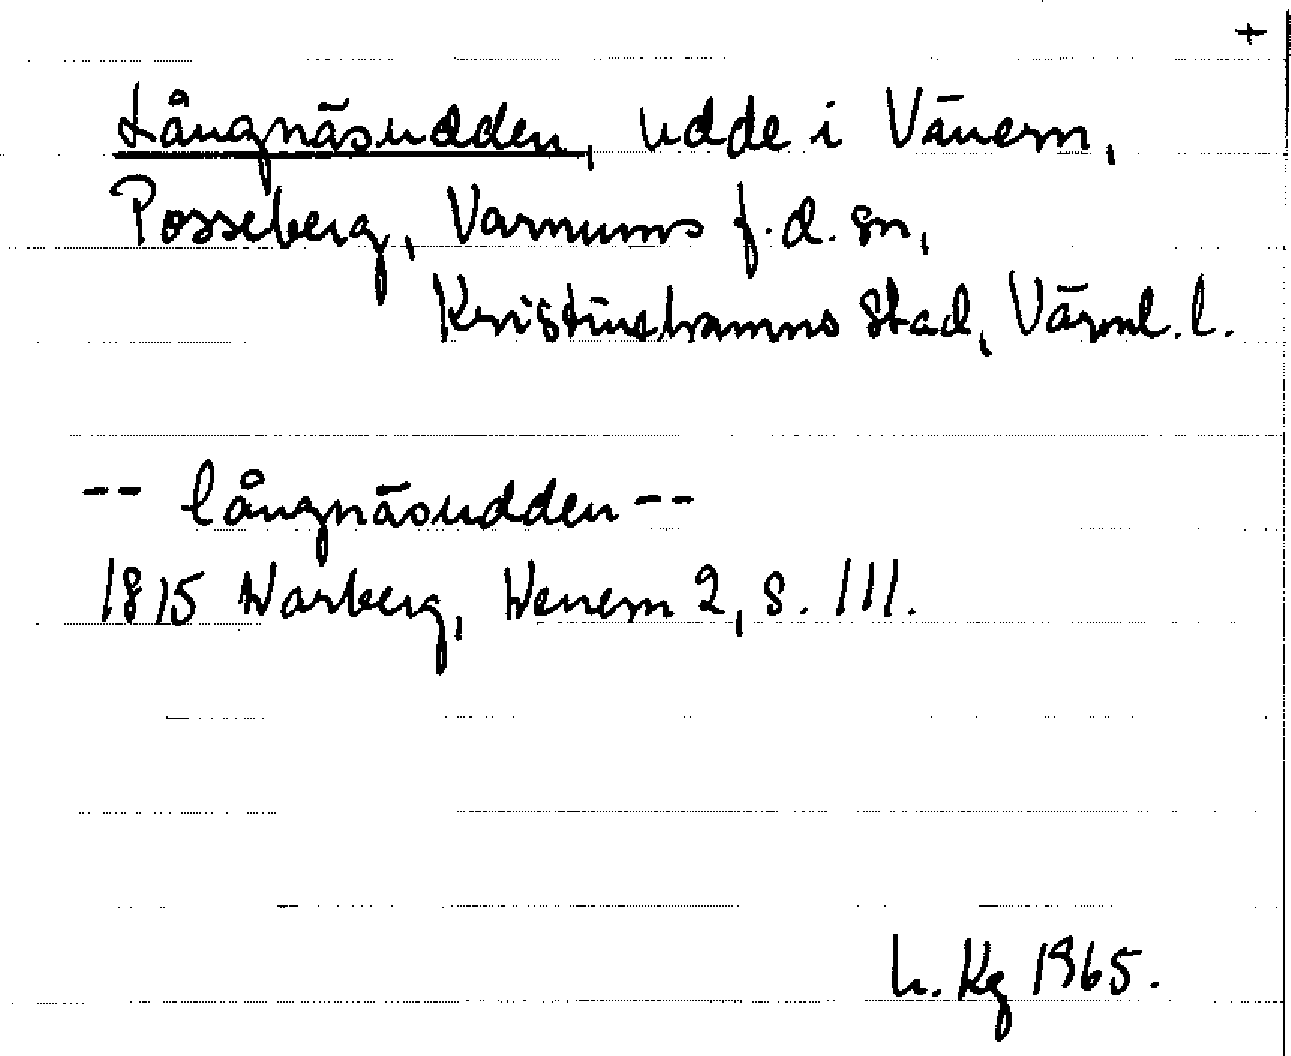 +
Långnäsudden, udde i Vänern,
Posseberg, Varnums f.d. sn,
Kristinehamns stad, Värml. l.
-- långnäsudden --
1815 Warberg, Wenern 2, s. 111.
h. Kg 1965.